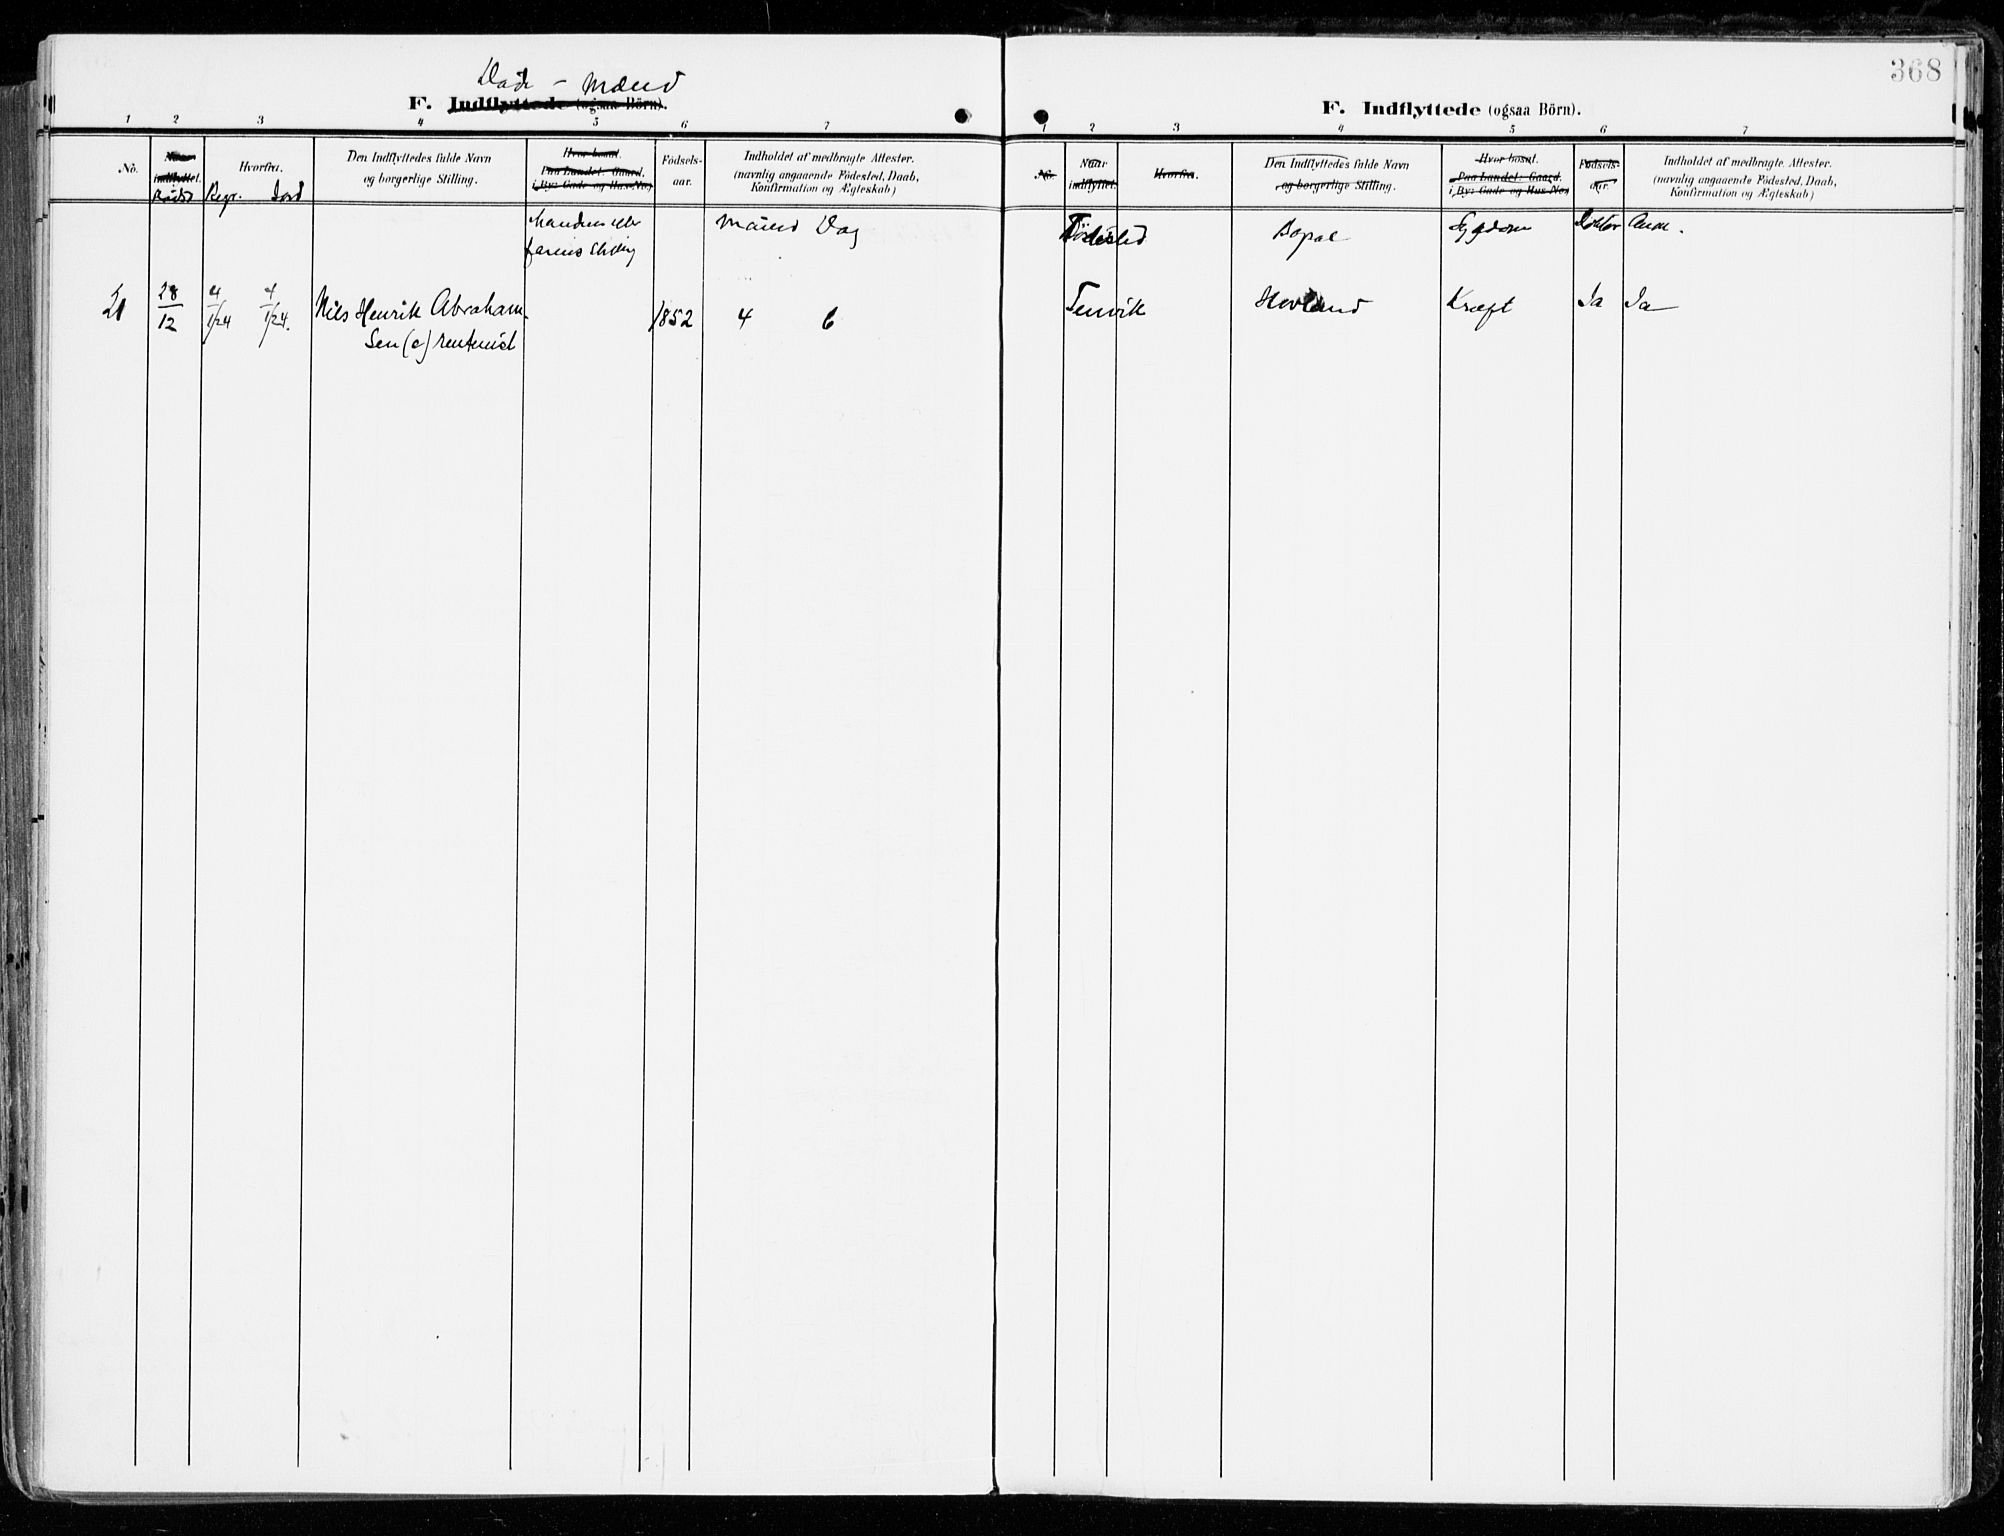 368
Døde - Mænd
F. Indflyttede (ogsaa Börn).
1 2 3 4 5 6 7
No. Naar indflyttet. Hvorfra. Den Indflyttedes fulde Navn Hvor bosat. Födsels- Indholdet af medbragte Attester.
og borgerlige Stilling. Paa Landet: Gaard. aar. (navnlig angaaende Födested, Daab,
i By: Gade og Hus-No. Konfirmation og Ægteskab)
Døds Regr. Jord
Mandens eller Maaned Dag
farens Stilling
21 28/12 4/1/24 4/1/24. Nils Henrik Abraham- 1852 4 6
sen (e) rentenist
F. Indflyttede (ogsaa Börn).
1 2 3 4 5 6 7
No. Naar Hvorfra. Den Indflyttedes fulde Navn Hvor bosat. Födsels- Indholdet af medbragte Attester.
indflyttet. og borgerlige Stilling. Paa Landet: Gaard. aar. (navnlig angaaende Födested, Daab,
i By: Gade og Hus-No. Konfirmation og Ægteskab)
Fødested Bopæl Sygdom Doktor Anm.
Tenvik Hovland Kræft Ja Ja